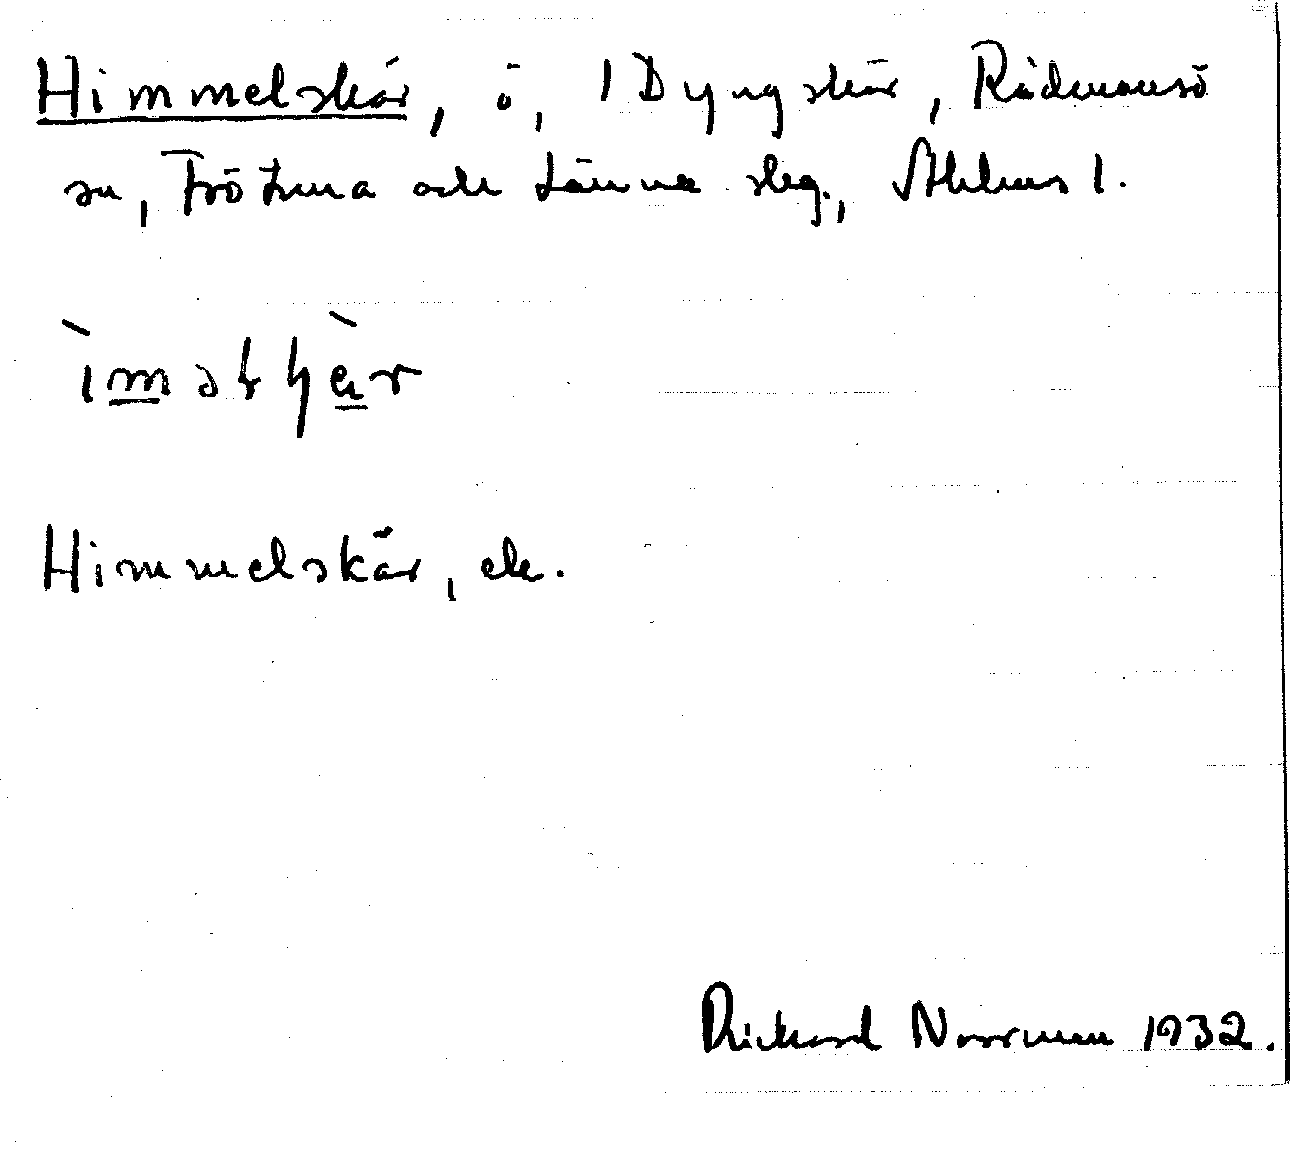 Himmelskär, ö, 1 Dyngskär, Rådmansö
sn, Frötuna och Länna skg., Sthlms l.
Himmelskär, ek.
Rickard Norrman 1932.